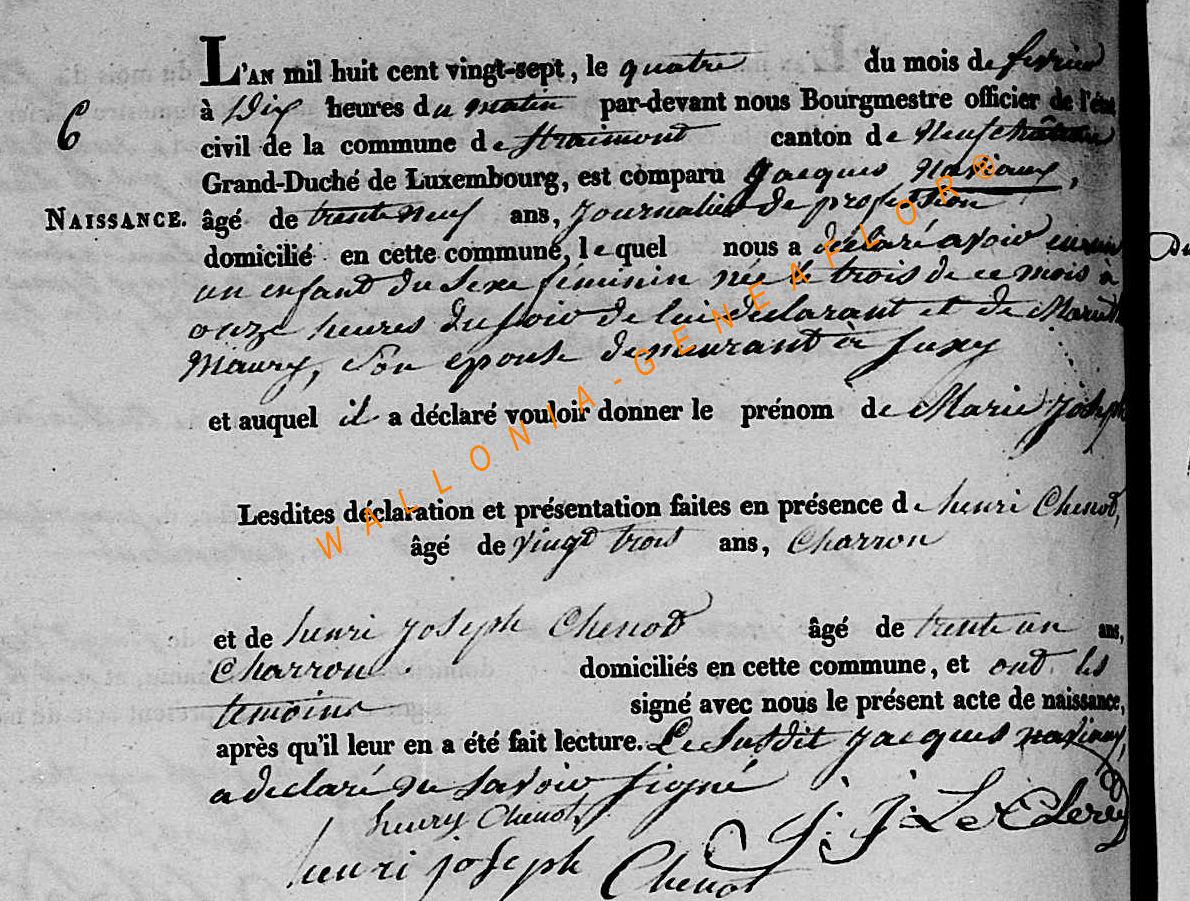 L'AN mil huit cent vingt-sept, le quatre du mois de fevrier
à Dix heures du matin par-devant nous Bourgmestre officier de l'état
6
civil de la commune de Straimont canton de Neufchâteau
Grand-Duché de Luxembourg, est comparu Jacques
NAISSANCE. âgé de trente neuf ans, Journalier de profession
domicilié en cette commune, lequel nous a déclaré avoir
un enfant du Sexe féminin née le trois de ce mois à
onze heures du soir de lui déclarant et de
Maury, Son epouse demeurant à Suxy
et auquel il a déclaré vouloir donner le prénom de Marie Joseph
Lesdites déclaration et présentation faites en présence de henri Chenot,
âgé de vingt trois ans, Charron
et de henri Joseph Chenot âgé de trente un ans,
Charron domiciliés en cette commune, et ont les
temoins signé avec nous le présent acte de naissance,
après qu'il leur en a été fait lecture. Le Susdit Jacques
a declaré ne Savoir Signé
henry Chenot
henri joseph Chenot
WALLONIA-GENEAFLOR®